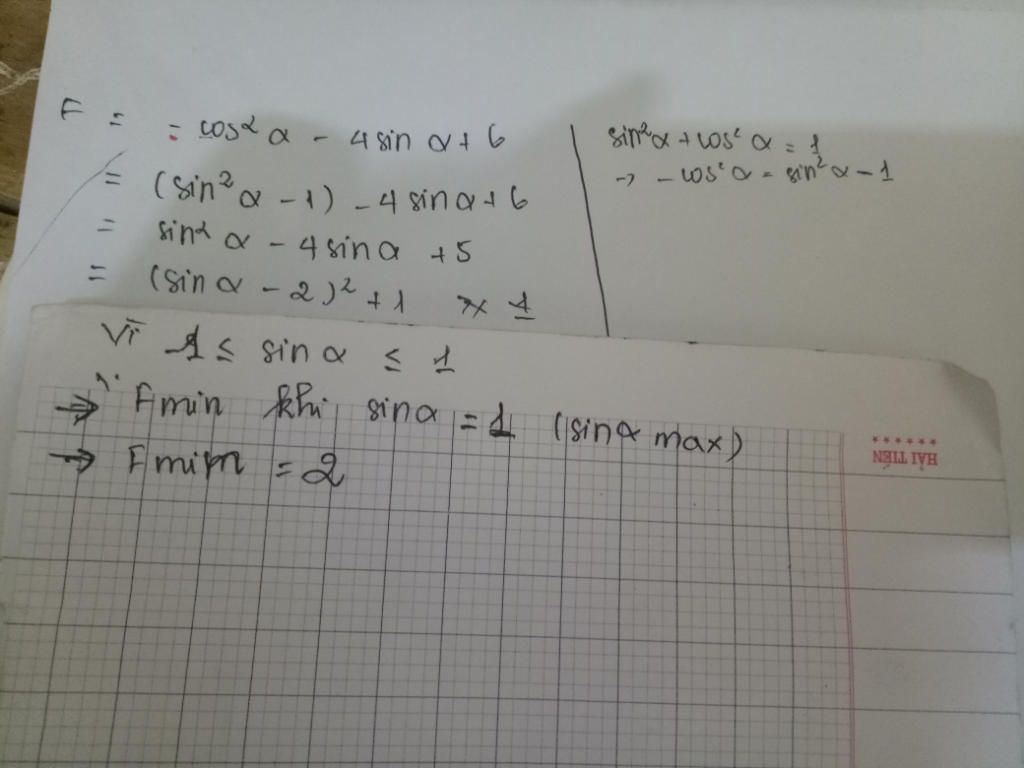 F = = cos²α - 4sinα + 6
= (sin²α - 1) - 4sinα + 6
= sin²α - 4sinα + 5
= (sinα - 2)² + 1 ≥ 1
sin²α + cos²α = 1
→ -cos²α = sin²α - 1
Vì -1 ≤ sinα ≤ 1
⇒ Fmin khi sinα = 1 (sinα max)
→ Fmin = 2
★★★★★★
HẢI TIẾN